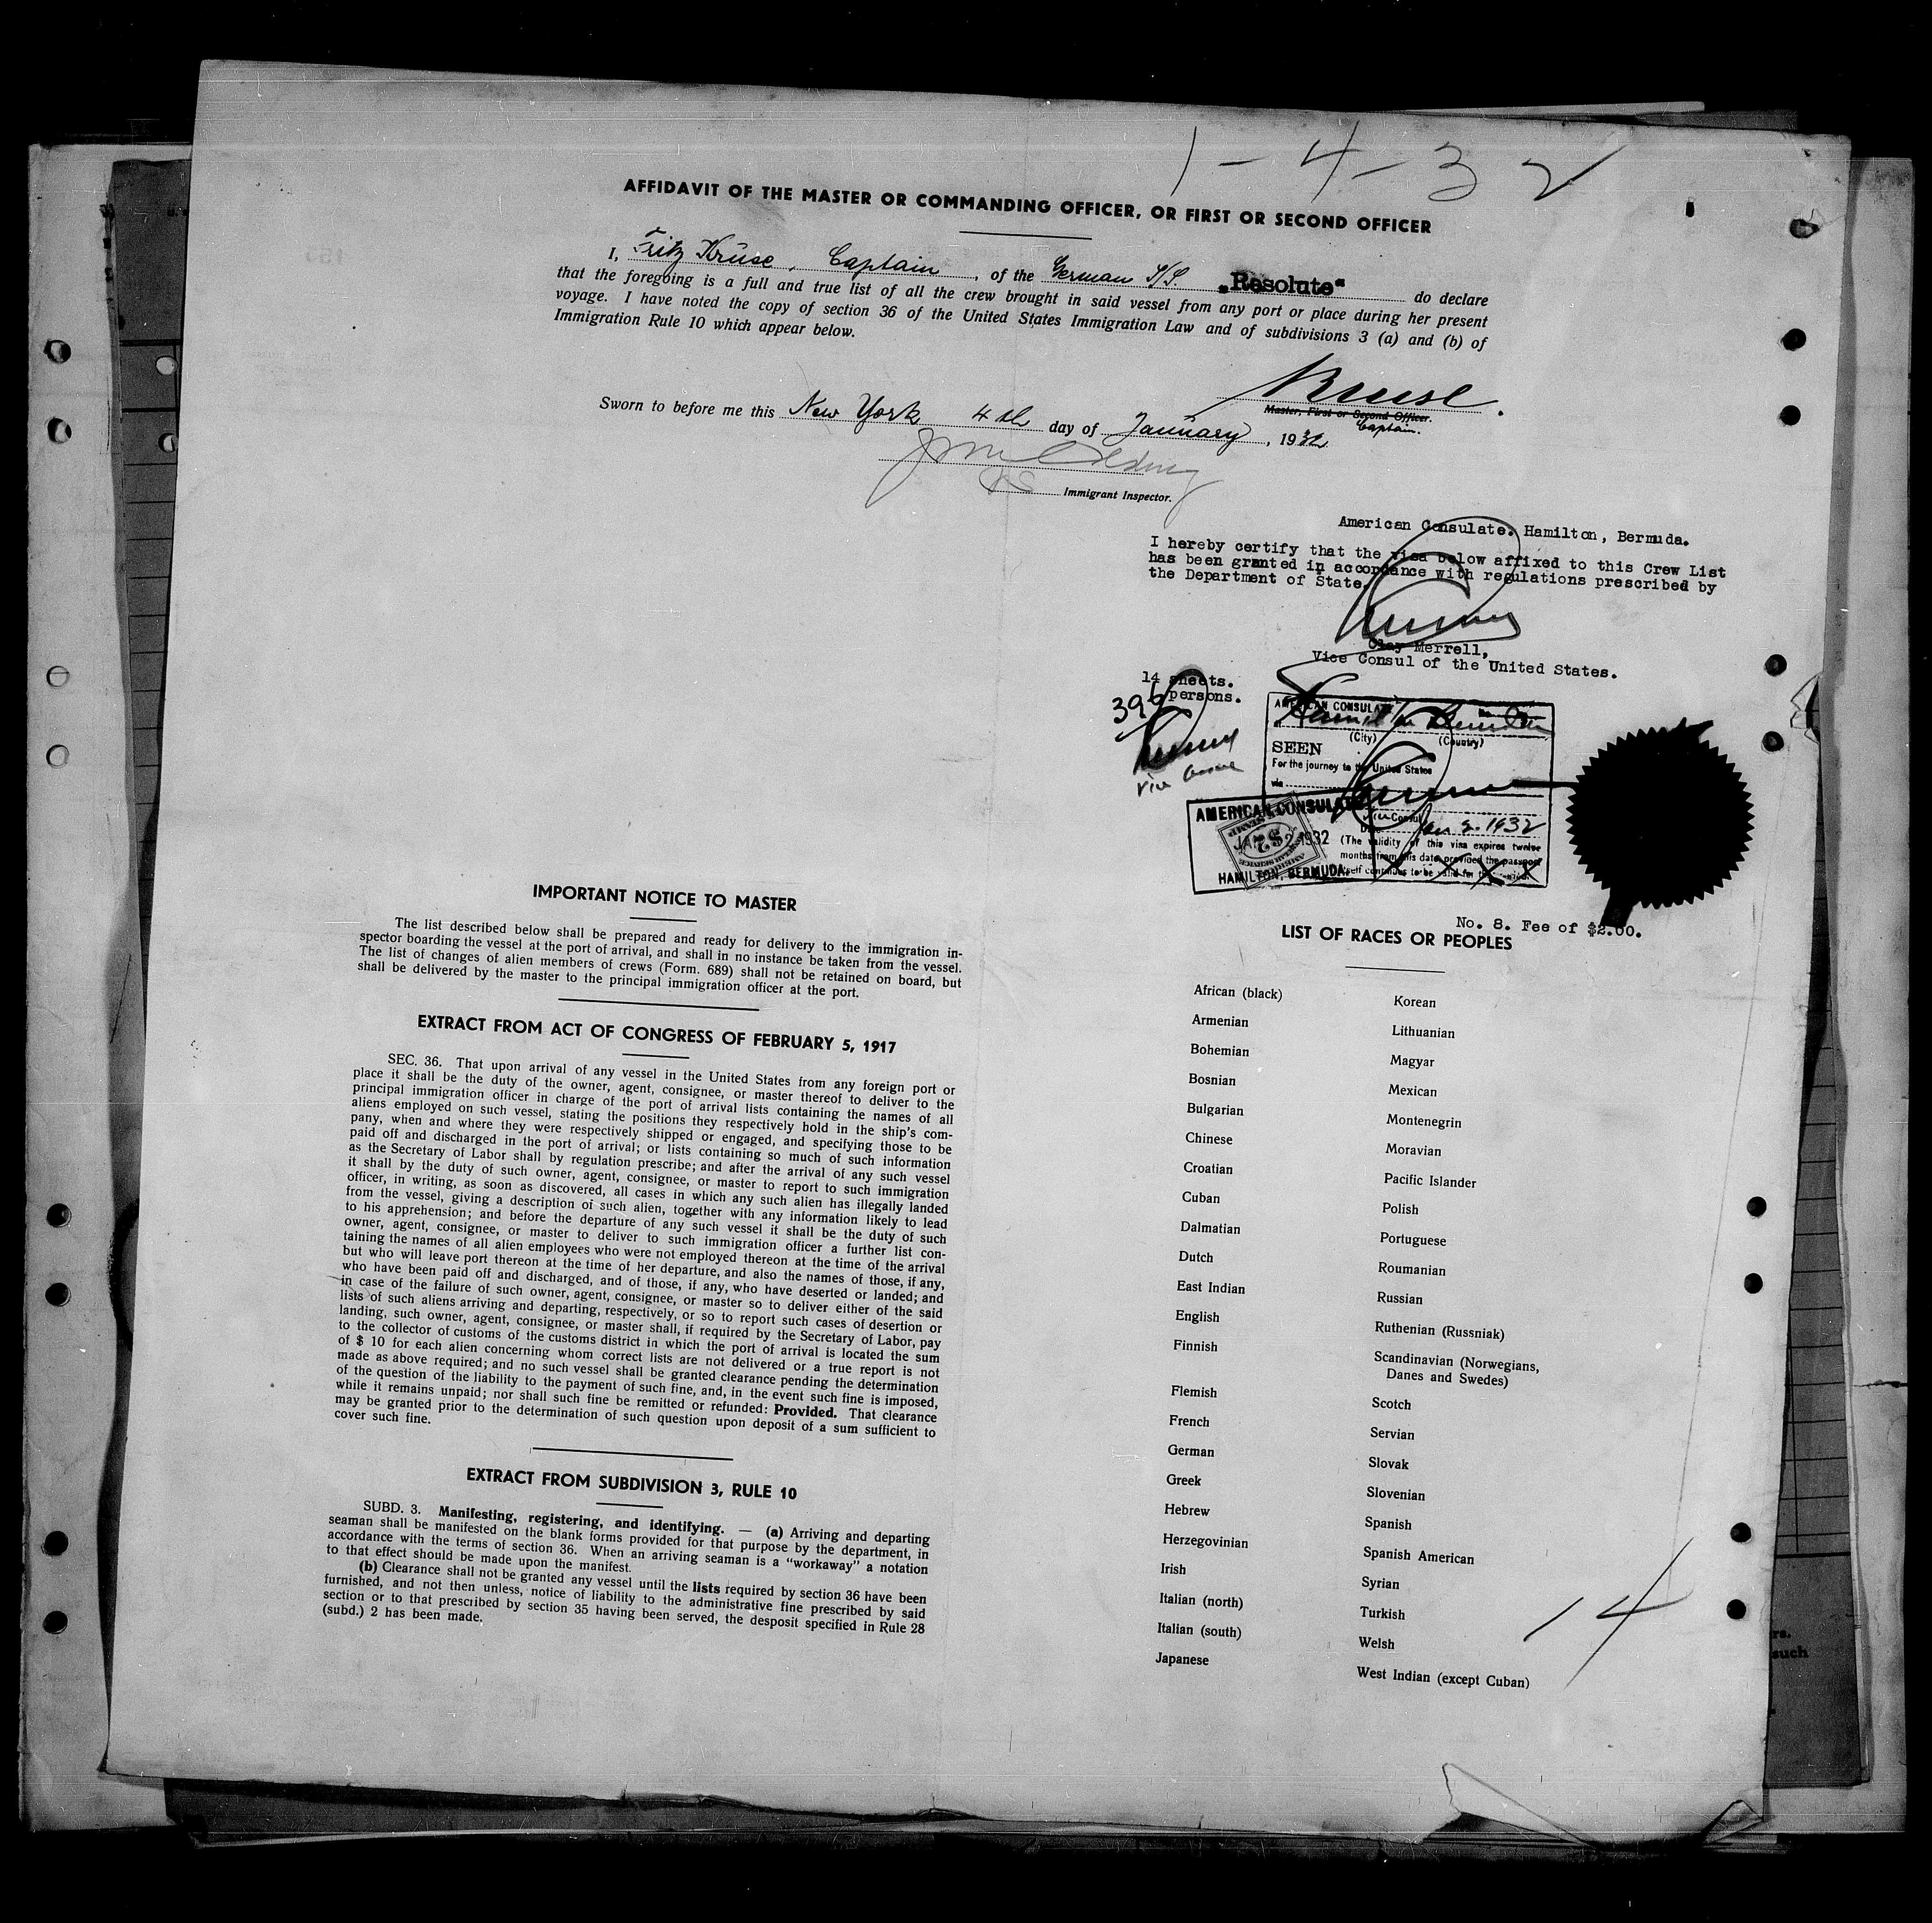 1-4-32
AFFIDAVIT OF THE MASTER OR COMMANDING OFFICER, OR FIRST OR SECOND OFFICER
I, Fritz Krüse, Captain, of the German S/S. „Resolute“ do declare
that the foregoing is a full and true list of all the crew brought in said vessel from any port or place during her present
voyage. I have noted the copy of section 36 of the United States Immigration Law and of subdivisions 3 (a) and (b) of
Immigration Rule 10 which appear below.
Kruse.
Master, First or Second Officer.
Captain.
Sworn to before me this New York 4th day of January, 1932.
Immigrant Inspector.
American Consulate. Hamilton, Bermuda.
I hereby certify that the visa below affixed to this Crew List
has been granted in accordance with regulations prescribed by
the Department of State.
Clay Merrell,
Vice Consul of the United States.
14 sheets.
persons.
Vice Consul
AMERICAN CONSULATE
No.
at Hamilton Bermuda
(City) (Country)
SEEN
For the journey to the United States
via
Vice Consul
Date Jan 2. 1932
(The validity of this visa expires twelve
months from this date provided the passport
itself continues to be valid for that period.
AMERICAN CONSULATE
JAN 2 1932
HAMILTON, BERMUDA
No. 8. Fee of $2.00.
IMPORTANT NOTICE TO MASTER
The list described below shall be prepared and ready for delivery to the immigration in-
spector boarding the vessel at the port of arrival, and shall in no instance be taken from the vessel.
The list of changes of alien members of crews (Form. 689) shall not be retained on board, but
shall be delivered by the master to the principal immigration officer at the port.
EXTRACT FROM ACT OF CONGRESS OF FEBRUARY 5, 1917
SEC. 36. That upon arrival of any vessel in the United States from any foreign port or
place it shall be the duty of the owner, agent, consignee, or master thereof to deliver to the
principal immigration officer in charge of the port of arrival lists containing the names of all
aliens employed on such vessel, stating the positions they respectively hold in the ship's com-
pany, when and where they were respectively shipped or engaged, and specifying those to be
paid off and discharged in the port of arrival; or lists containing so much of such information
as the Secretary of Labor shall by regulation prescribe; and after the arrival of any such vessel
it shall by the duty of such owner, agent, consignee, or master to report to such immigration
officer, in writing, as soon as discovered, all cases in which any such alien has illegally landed
from the vessel, giving a description of such alien, together with any information likely to lead
to his apprehension; and before the departure of any such vessel it shall be the duty of such
owner, agent, consignee, or master to deliver to such immigration officer a further list con-
taining the names of all alien employees who were not employed thereon at the time of the arrival
but who will leave port thereon at the time of her departure, and also the names of those, if any,
who have been paid off and discharged, and of those, if any, who have deserted or landed; and
in case of the failure of such owner, agent, consignee, or master so to deliver either of the said
lists of such aliens arriving and departing, respectively, or so to report such cases of desertion or
landing, such owner, agent, consignee, or master shall, if required by the Secretary of Labor, pay
to the collector of customs of the customs district in which the port of arrival is located the sum
of $ 10 for each alien concerning whom correct lists are not delivered or a true report is not
made as above required; and no such vessel shall be granted clearance pending the determination
of the question of the liability to the payment of such fine, and, in the event such fine is imposed,
while it remains unpaid; nor shall such fine be remitted or refunded: Provided. That clearance
may be granted prior to the determination of such question upon deposit of a sum sufficient to
cover such fine.
EXTRACT FROM SUBDIVISION 3, RULE 10
SUBD. 3. Manifesting, registering, and identifying. — (a) Arriving and departing
seaman shall be manifested on the blank forms provided for that purpose by the department, in
accordance with the terms of section 36. When an arriving seaman is a “workaway” a notation
to that effect should be made upon the manifest.
(b) Clearance shall not be granted any vessel until the lists required by section 36 have been
furnished, and not then unless, notice of liability to the administrative fine prescribed by said
section or to that prescribed by section 35 having been served, the desposit specified in Rule 28
(subd.) 2 has been made.
LIST OF RACES OR PEOPLES
African (black)
Armenian
Bohemian
Bosnian
Bulgarian
Chinese
Croatian
Cuban
Dalmatian
Dutch
East Indian
English
Finnish
Flemish
French
German
Greek
Hebrew
Herzegovinian
Irish
Italian (north)
Italian (south)
Japanese
Korean
Lithuanian
Magyar
Mexican
Montenegrin
Moravian
Pacific Islander
Polish
Portuguese
Roumanian
Russian
Ruthenian (Russniak)
Scandinavian (Norwegians,
Danes and Swedes)
Scotch
Servian
Slovak
Slovenian
Spanish
Spanish American
Syrian
Turkish
Welsh
West Indian (except Cuban)
14
rs.
such